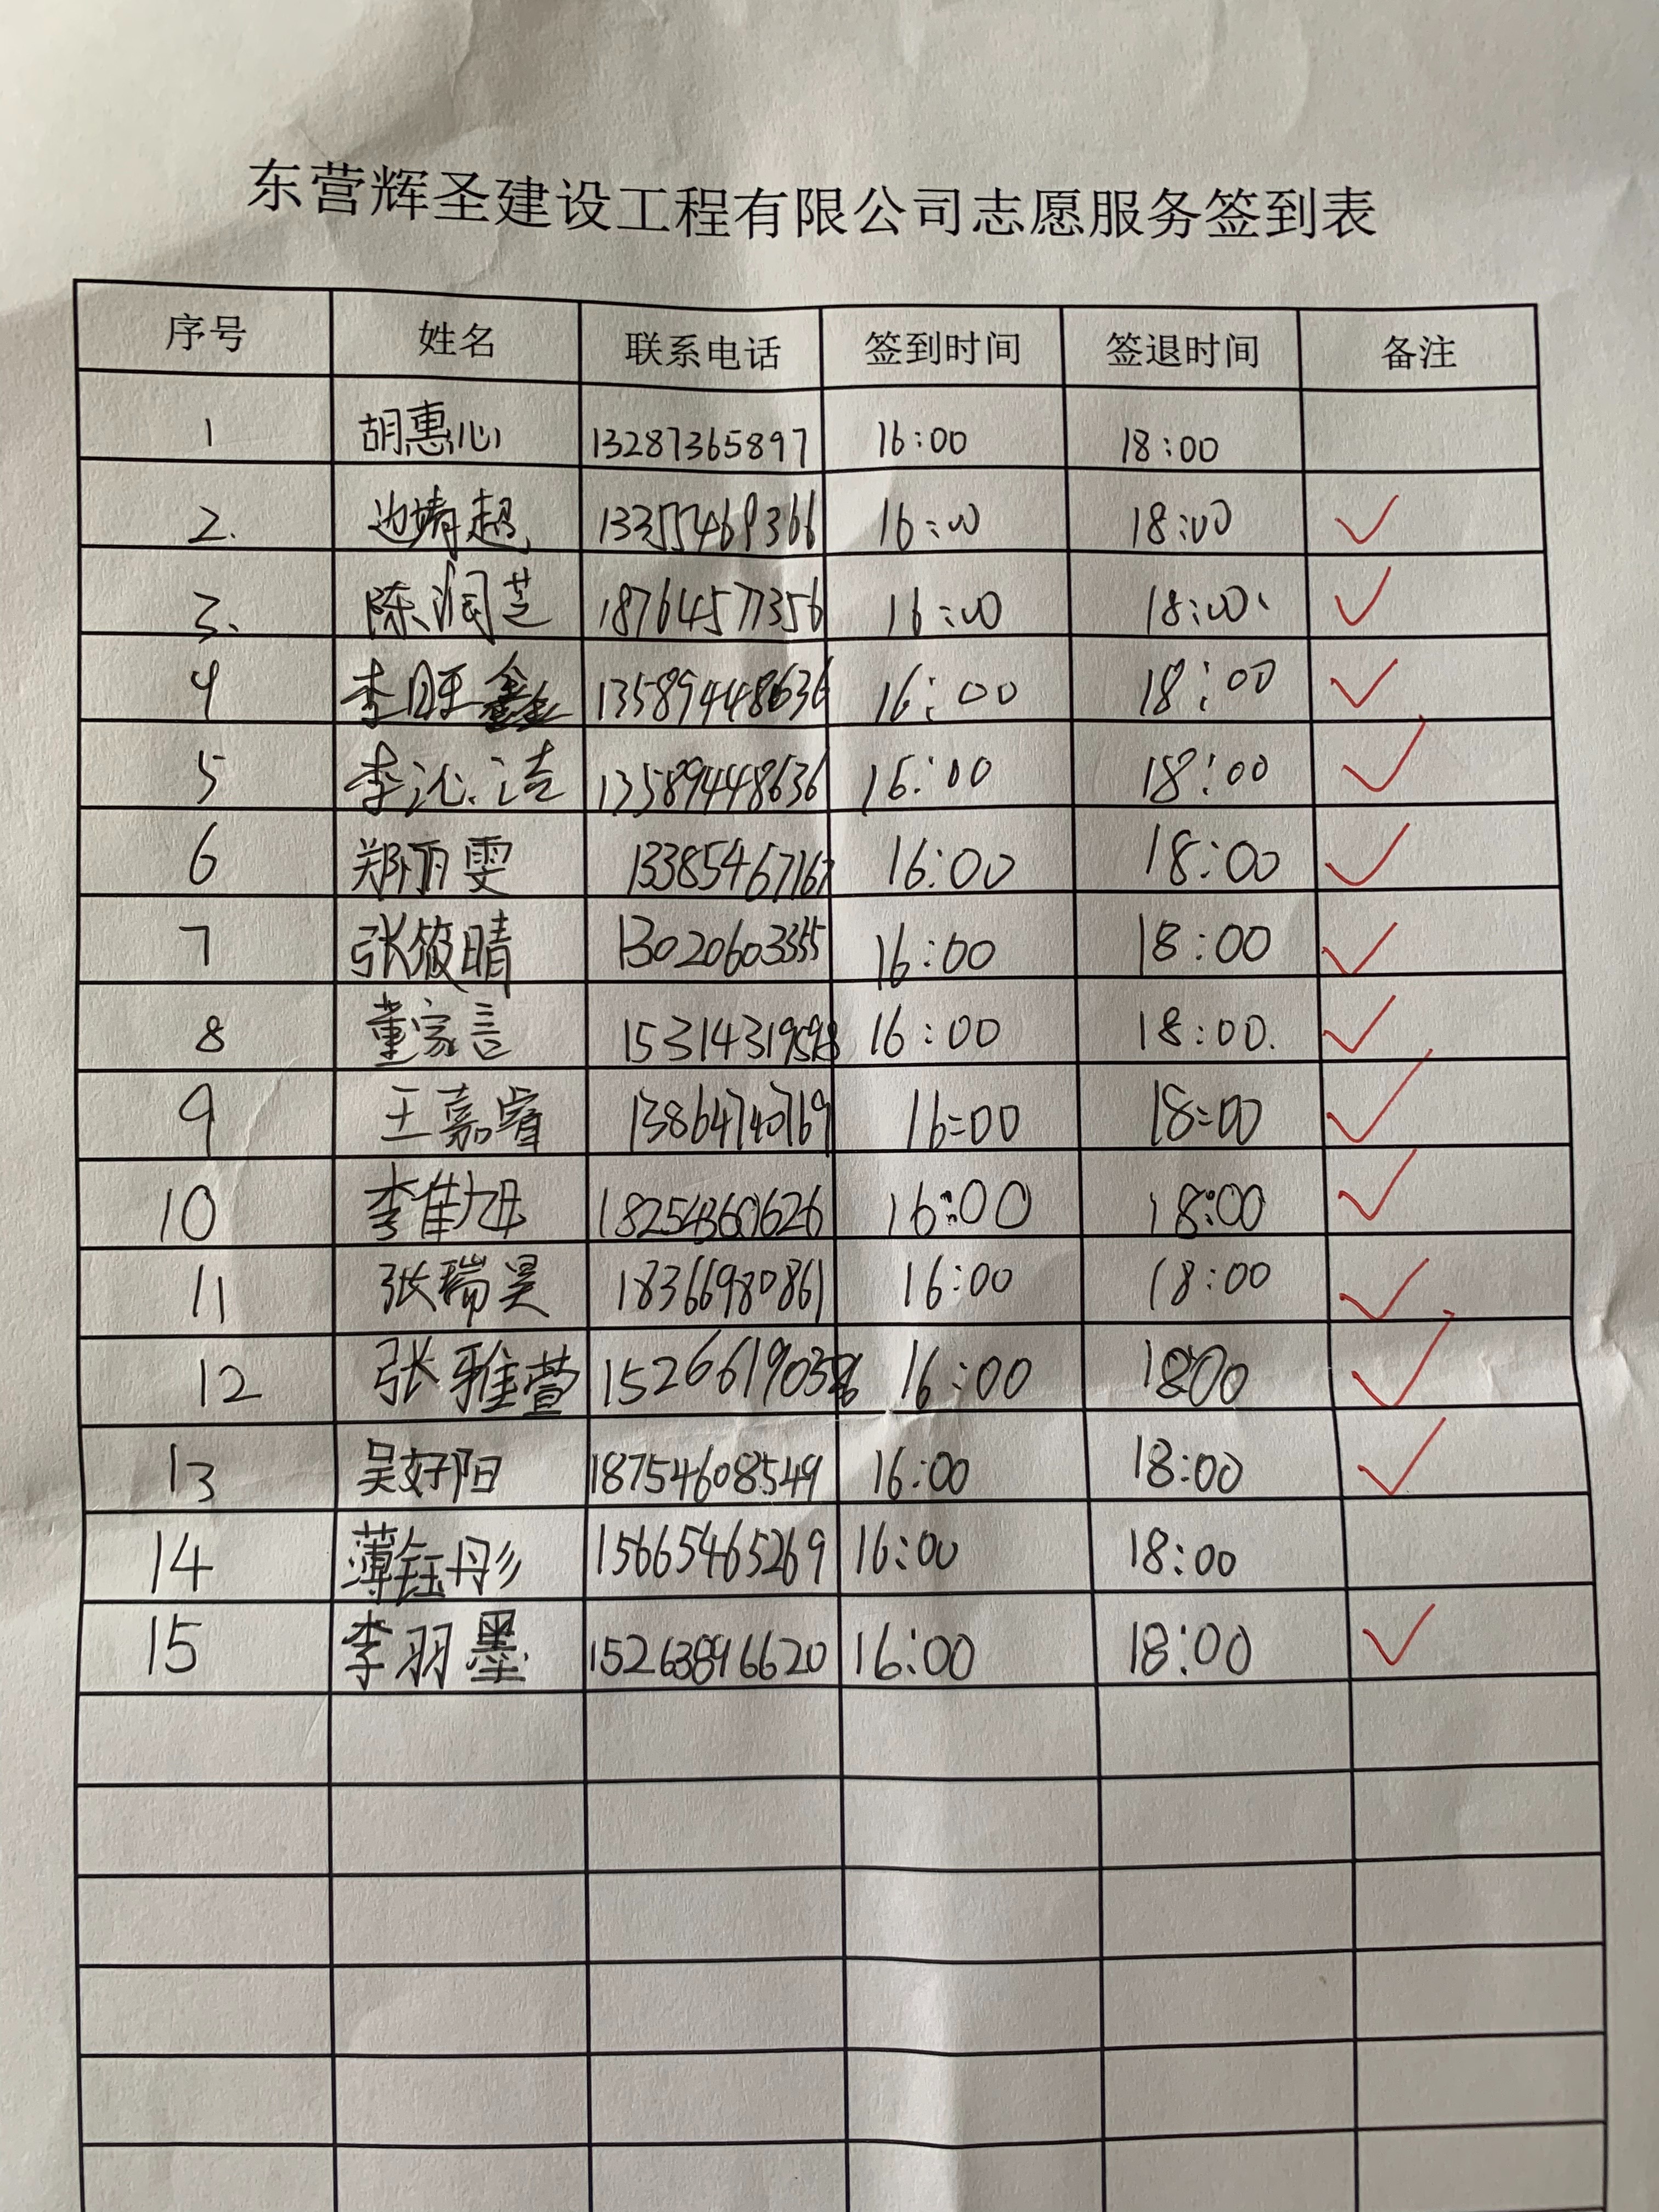 东营辉圣建设工程有限公司志愿服务签到表
序号 姓名 联系电话 签到时间 签退时间 备注
1 胡惠心 13287365897 16:00 18:00
2. 边婧超 13355469366 16:00 18:00 ✓
3. 陈润芝 18764577356 16:00 18:00 ✓
4 李旺鑫 13589448636 16:00 18:00 ✓
5 李沁洁 13589448636 16:00 18:00 ✓
6 郑丽雯 13385467167 16:00 18:00 ✓
7 张筱晴 13020603355 16:00 18:00 ✓
8 董家言 16:00 18:00. ✓
9 王嘉睿 13864740769 16:00 18:00 ✓
10 李佳旭 18254360626 16:00 18:00 ✓
11 张瑞昊 18366980861 16:00 18:00 ✓
12 张雅萱 16:00 18:00 ✓
13 吴好阳 18754608549 16:00 18:00 ✓
14 薄钰彤 15665465269 16:00 18:00
15 李羽墨 15263896620 16:00 18:00 ✓